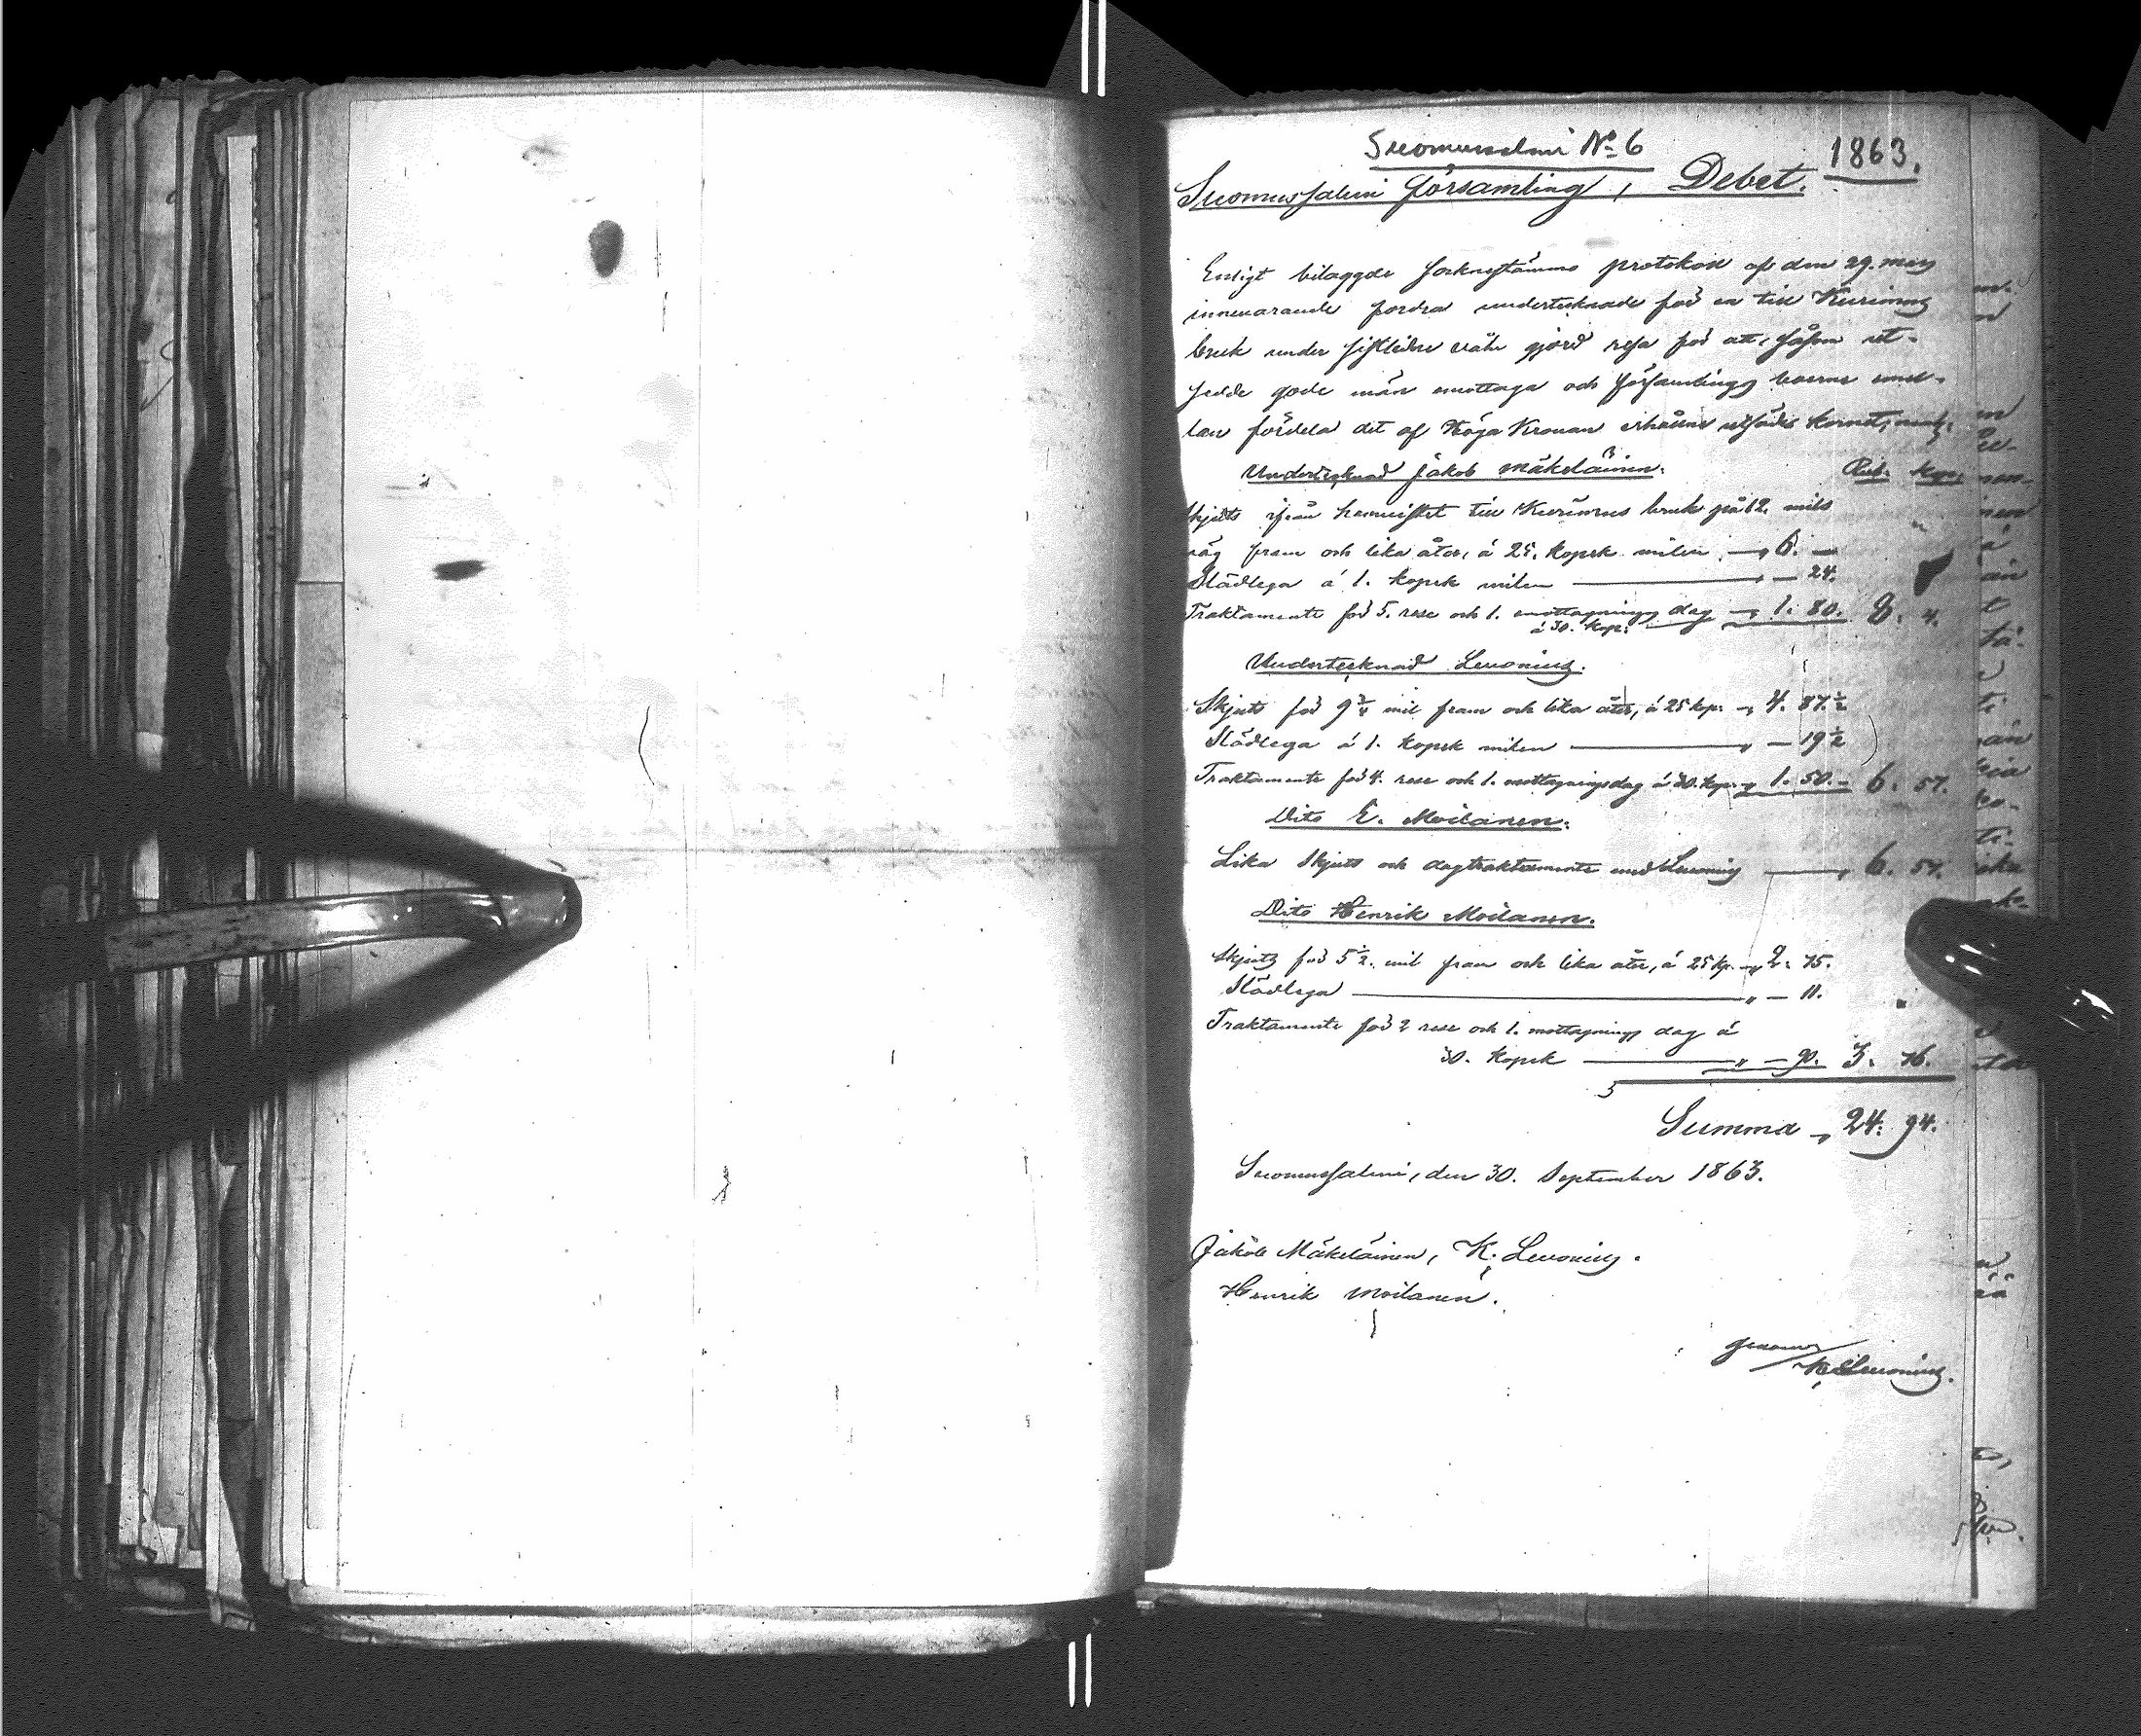 Suomussalmi No 6
1863.
Suomussalmi församling, Debet.
Enligt bilaggde socknestämmo protokoll af den 29. mens
innevarande fordra undertecknade för en till Kurimus
bruk under sistledne gjord resa för att, såsom ut-
sedde gode män emottaga och församlings boerne emel-
lan fördela det af Höga Kronan erhållne utsädes kornet,
Undertecknad Jakob Mäkeläinen: Rub. kop.
Skjuts ifrån hemvistet till Kurimus bruk på 12 mils
väg fram och lika åter, á 25. kopek milen „ 6. —
Slädlega á 1. kopek milen „ — 24.
Traktamente för 5. rese och 1. emottagnings dag „ 1. 80. 8. 4.
á 30. kop:
Undertecknad Leuonius.
Skjuts för 9 3/4 mil fram och lika åter, á 25 kop. „ 4. 87 1/2
Slädlega á 1. kopek milen „ — 19 1/2
Traktamente för 4. rese och 1. mottagningsdag á 30. kop. „ 1. 50. — 6. 57.
Dito E. Moilanen:
Lika skjuts och dagtraktamente med Leuonius „ 6. 57.
Dito Henrik Moilanen.
Skjuts för 5 1/2. mil fram och lika åter, á 25 kp. „ 2. 75.
Slädlega „ — 11.
Traktamente för 2 rese och 1. mottagnings dag á
30. kopek „ — 90. 3. 76.
Summa „ 24. 94.
Suomussalmi, den 30. September 1863.
Jakob Mäkeläinen, K. Leuonius.
Henrik Moilanen.
genom
K. Leuonius.